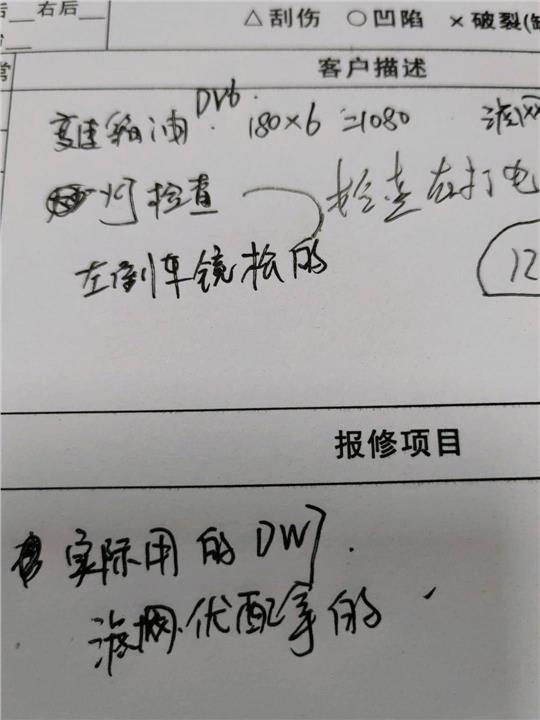 右后
△刮伤 ○凹陷 ×破裂(
常
客户描述
变速箱油 DV6. 180×6 =1080 滤网
灯检查 检查右大灯电
左倒车镜松的
12
报修项目
实际用的DW1.
滤网.优配拿的